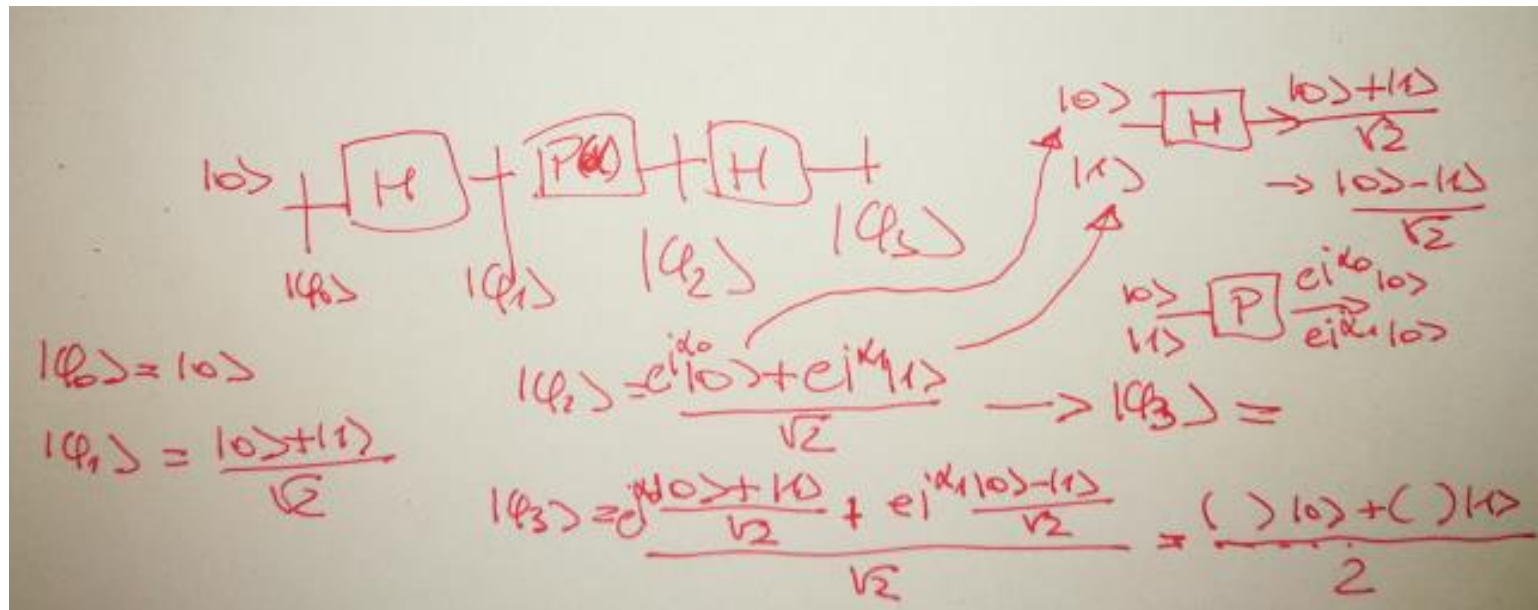 |0> H P(α) H
|φ₀> |φ₁> |φ₂> |φ₃>
|0> H → |0>+|1> / √2
|1> → |0>-|1> / √2
|0> P e^{iα₀}|0>
|1> e^{iα₁}|0>
|φ₀> = |0>
|φ₁> = |0>+|1> / √2
|φ₂> = e^{iα₀}|0> + e^{iα₁}|1> / √2 → |φ₃> =
|φ₃> = e^{iα₀} |0>+|1> / √2 + e^{iα₁} |0>-|1> / √2 / √2 = ( )|0>+( )|1> / 2